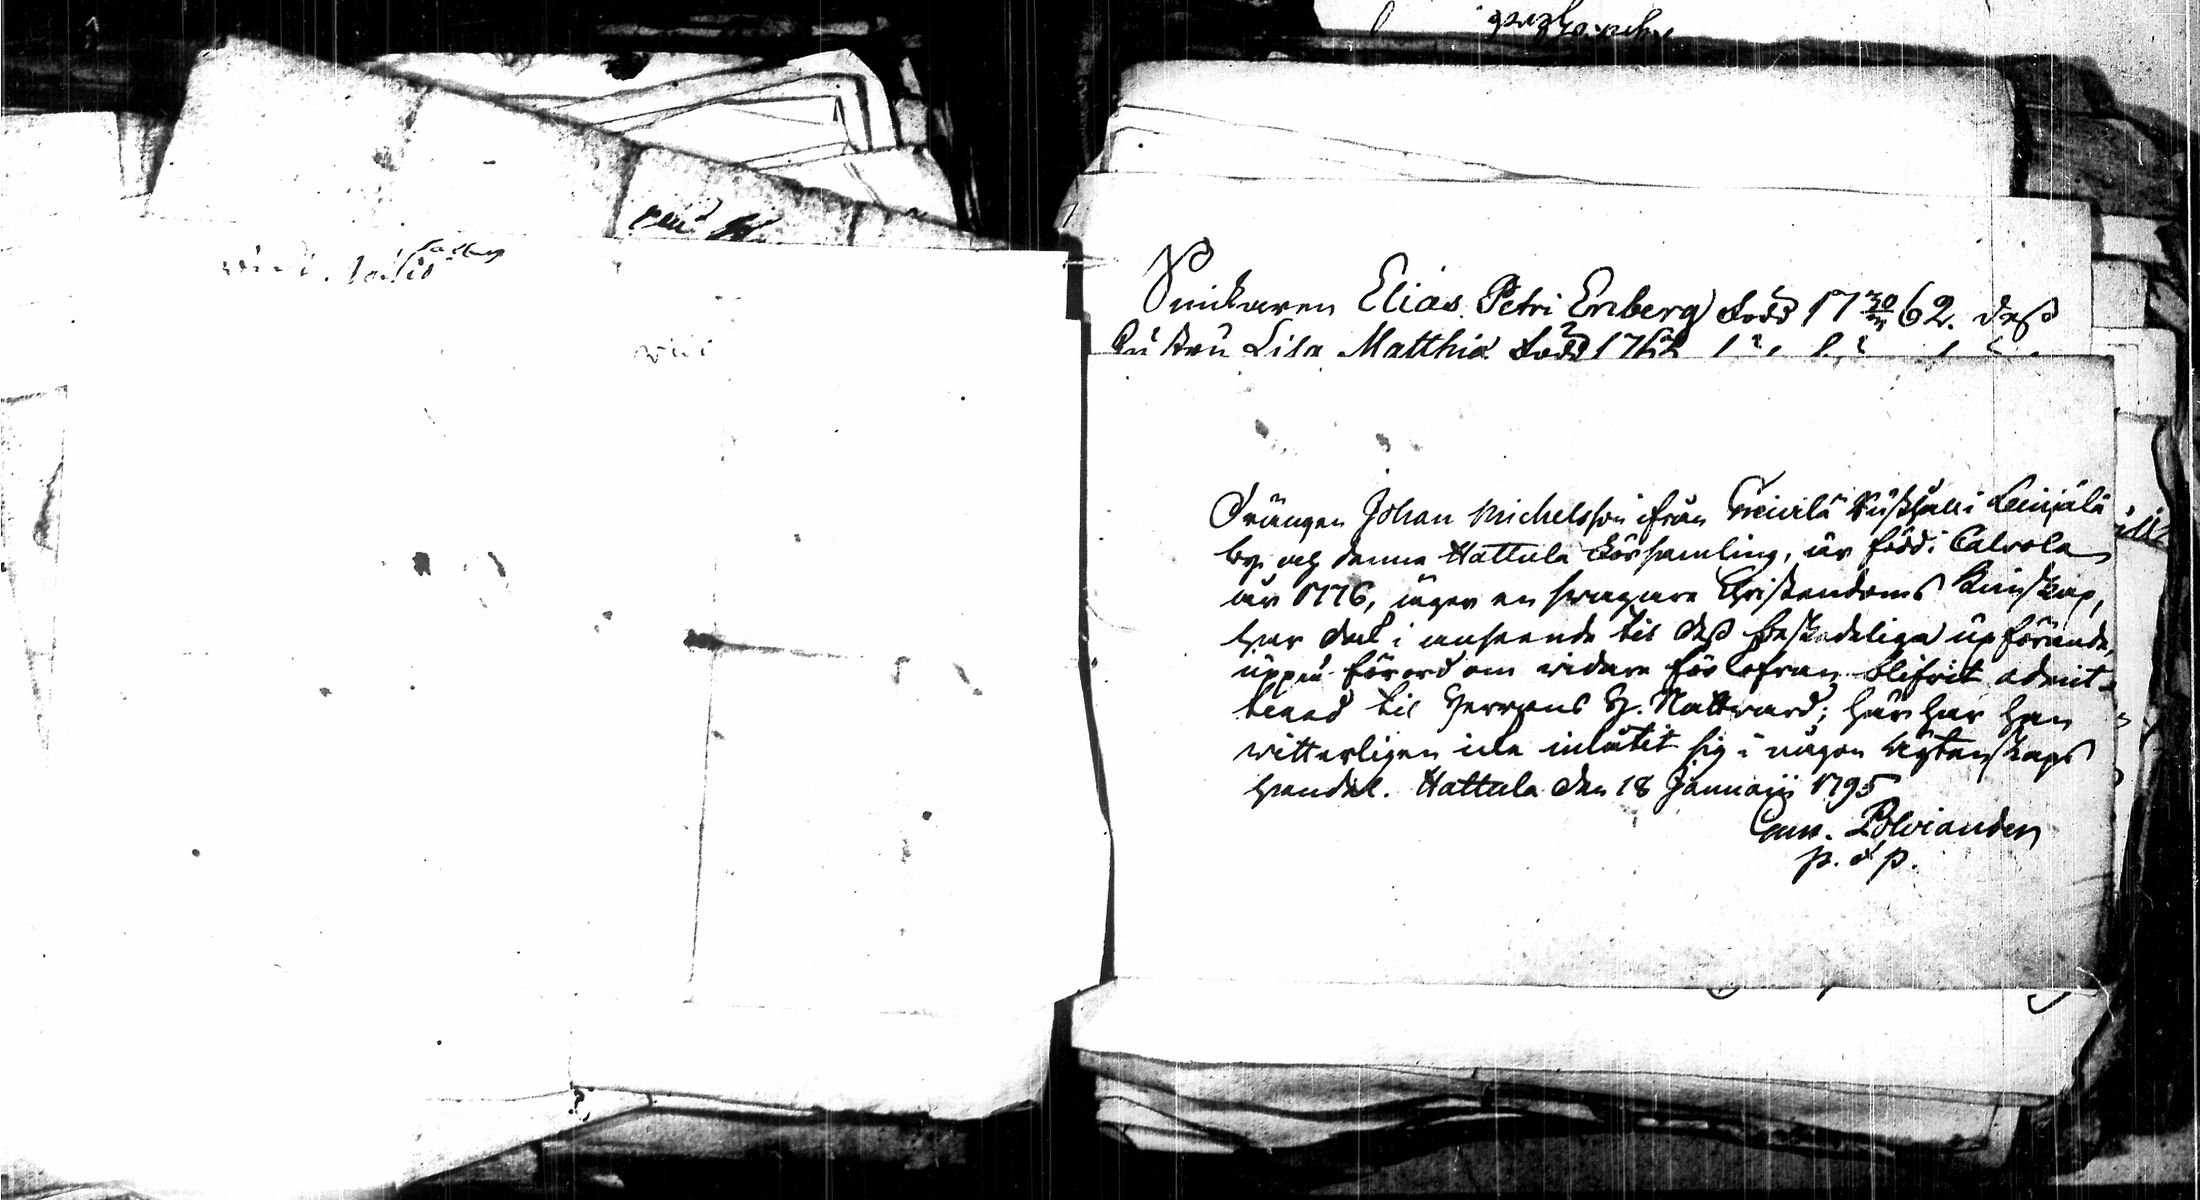 Snickaren Elias Petri Enberg född 17 30/ 62. dess
hustru Lisa Matthiæ född 1762
Drängen Johan Michelsson ifrån Rusthåll i Leinjälä
by och denna Hattula Församling, är född i Calvola
år 1776, äger en swagare Christendoms Kunskap,
har dock i anseende til dess beskedeliga upförande,
uppå förord om widare förkofran blifwit admit-
terad til Herrans H. Nattward; här har han
witterligen icke inlåtit sig i någon Ägtenskaps
handel. Hattula den 18 Januarii 1795
Polviander
p. & p.